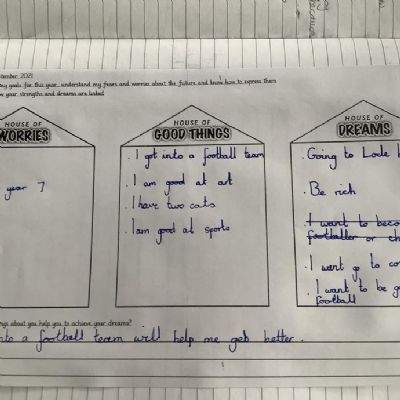 tember 2021
my goals for this year, understand my fears and worries about the future and know how to express them
w your strengths and dreams are linked
HOUSE OF
WORRIES
year 7
HOUSE OF
GOOD THINGS
. I got into a football team
. I am good at art
. I have two cats
. I am good at sports
HOUSE OF
DREAMS
. Going to Lode
. Be rich
. I want to beco
footballer or ch
. I want go to co
. I want to be go
football
ngs about you help you to achieve your dreams?
nto a football team will help me get better.